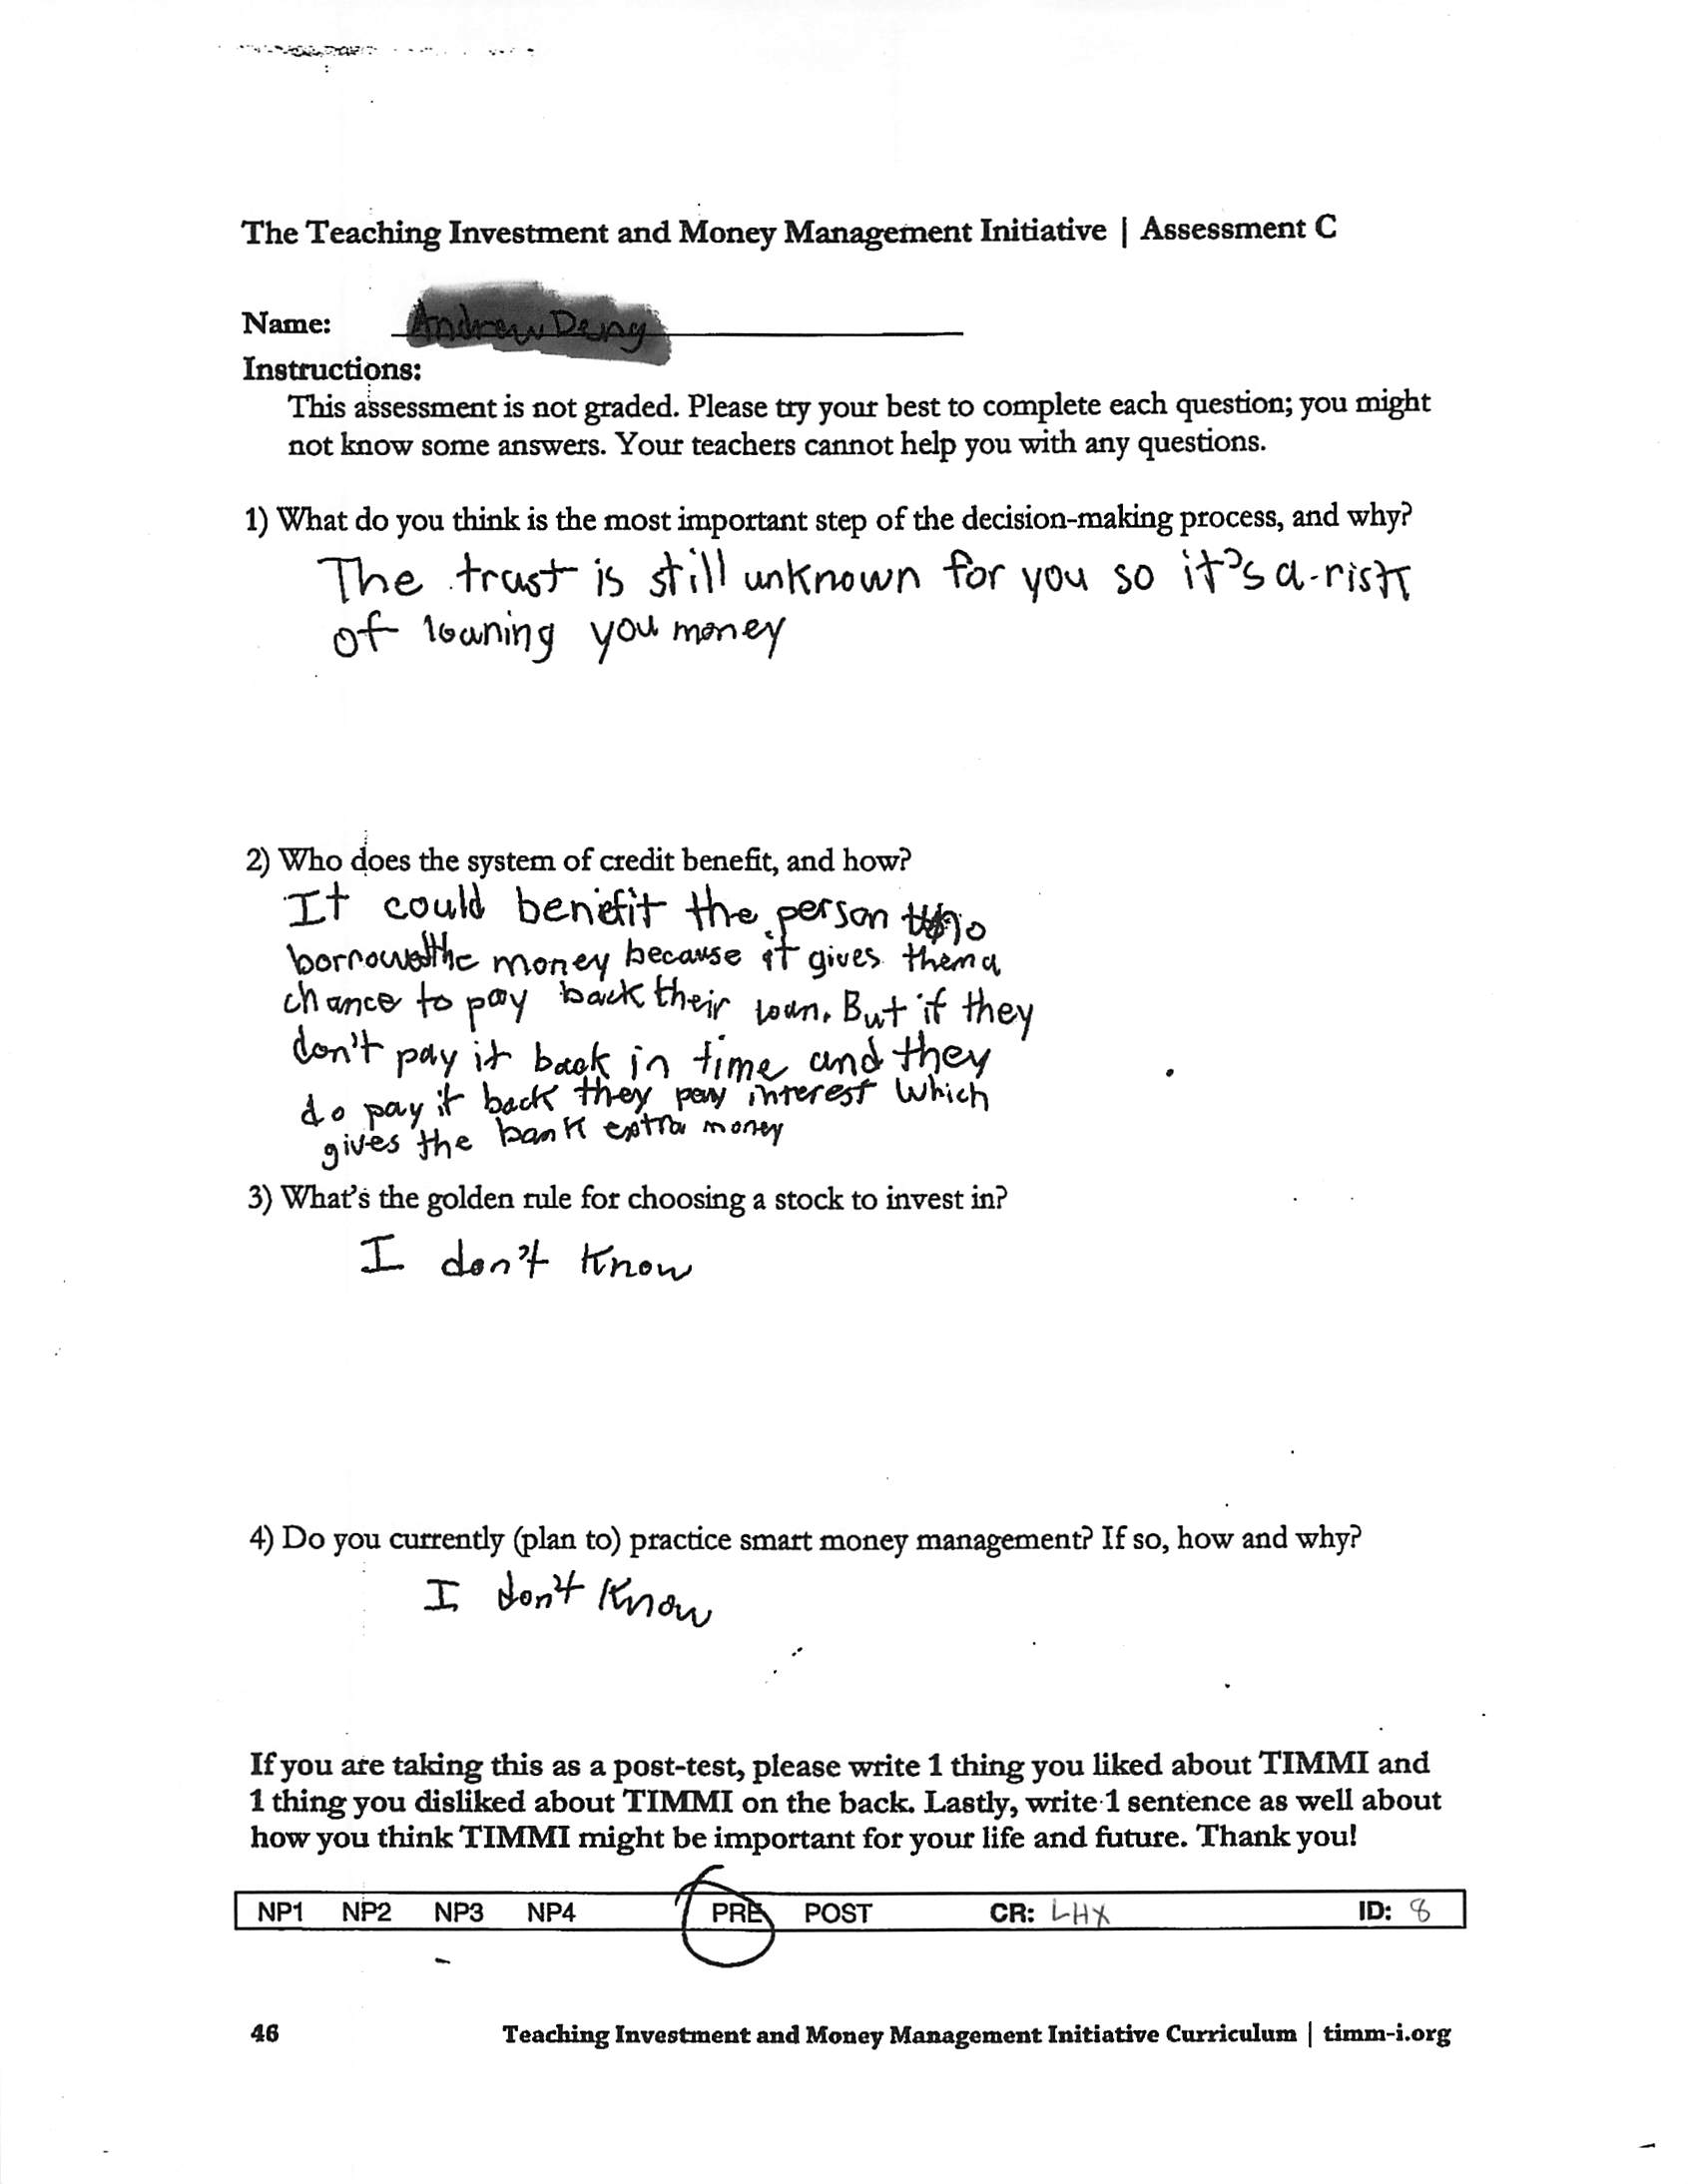 The Teaching Investment and Money Management Initiative | Assessment C
Name:
Instructions:
This assessment is not graded. Please try your best to complete each question; you might
not know some answers. Your teachers cannot help you with any questions.
1) What do you think is the most important step of the decision-making process, and why?
The trust is still unknown for you so it's a risk
of loaning you money
2) Who does the system of credit benefit, and how?
It could benefit the person who
borrows the money because it gives them a
chance to pay back their loan. But if they
don't pay it back in time and they
do pay it back they pay interest which
gives the bank extra money
3) What's the golden rule for choosing a stock to invest in?
I don't know
4) Do you currently (plan to) practice smart money management? If so, how and why?
I don't know
If you are taking this as a post-test, please write 1 thing you liked about TIMMI and
1 thing you disliked about TIMMI on the back. Lastly, write 1 sentence as well about
how you think TIMMI might be important for your life and future. Thank you!
NP1 NP2 NP3 NP4 PRE POST CR: LHX ID: 8
46 Teaching Investment and Money Management Initiative Curriculum | timm-i.org